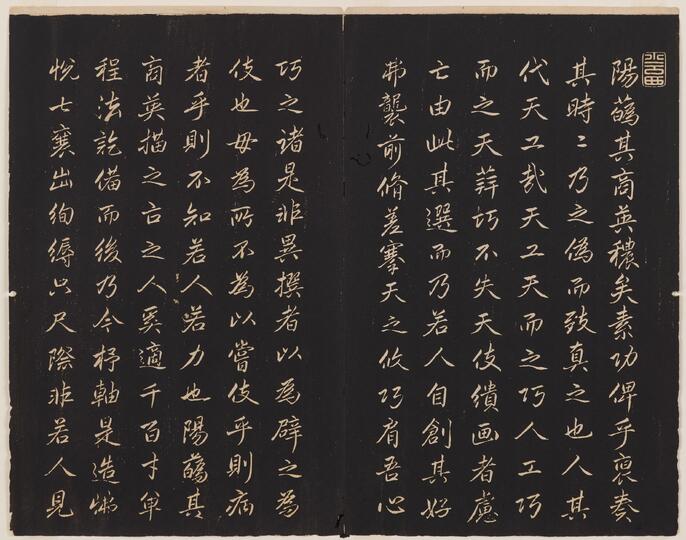 陽蘤其高英穠矣素功俾乎裒奏
其時〻乃之偽而致真之也人其
代天工哉天工天而之巧人工巧
而之天葬巧不失天伎繢画者慮
亡由此其選而乃若人自創其好
弗襲前脩羞搴天之攸巧肩吾心
巧之諸是非異撰者以為辟之為
伎也毋為所不為以嘗伎乎則病
者乎則不知若人若力也陽蘤其
高英描之亡之人奚適千百才單
程法詑備而後乃今杼軸是造悌
悅士襄出絢縟六尺際非若人見